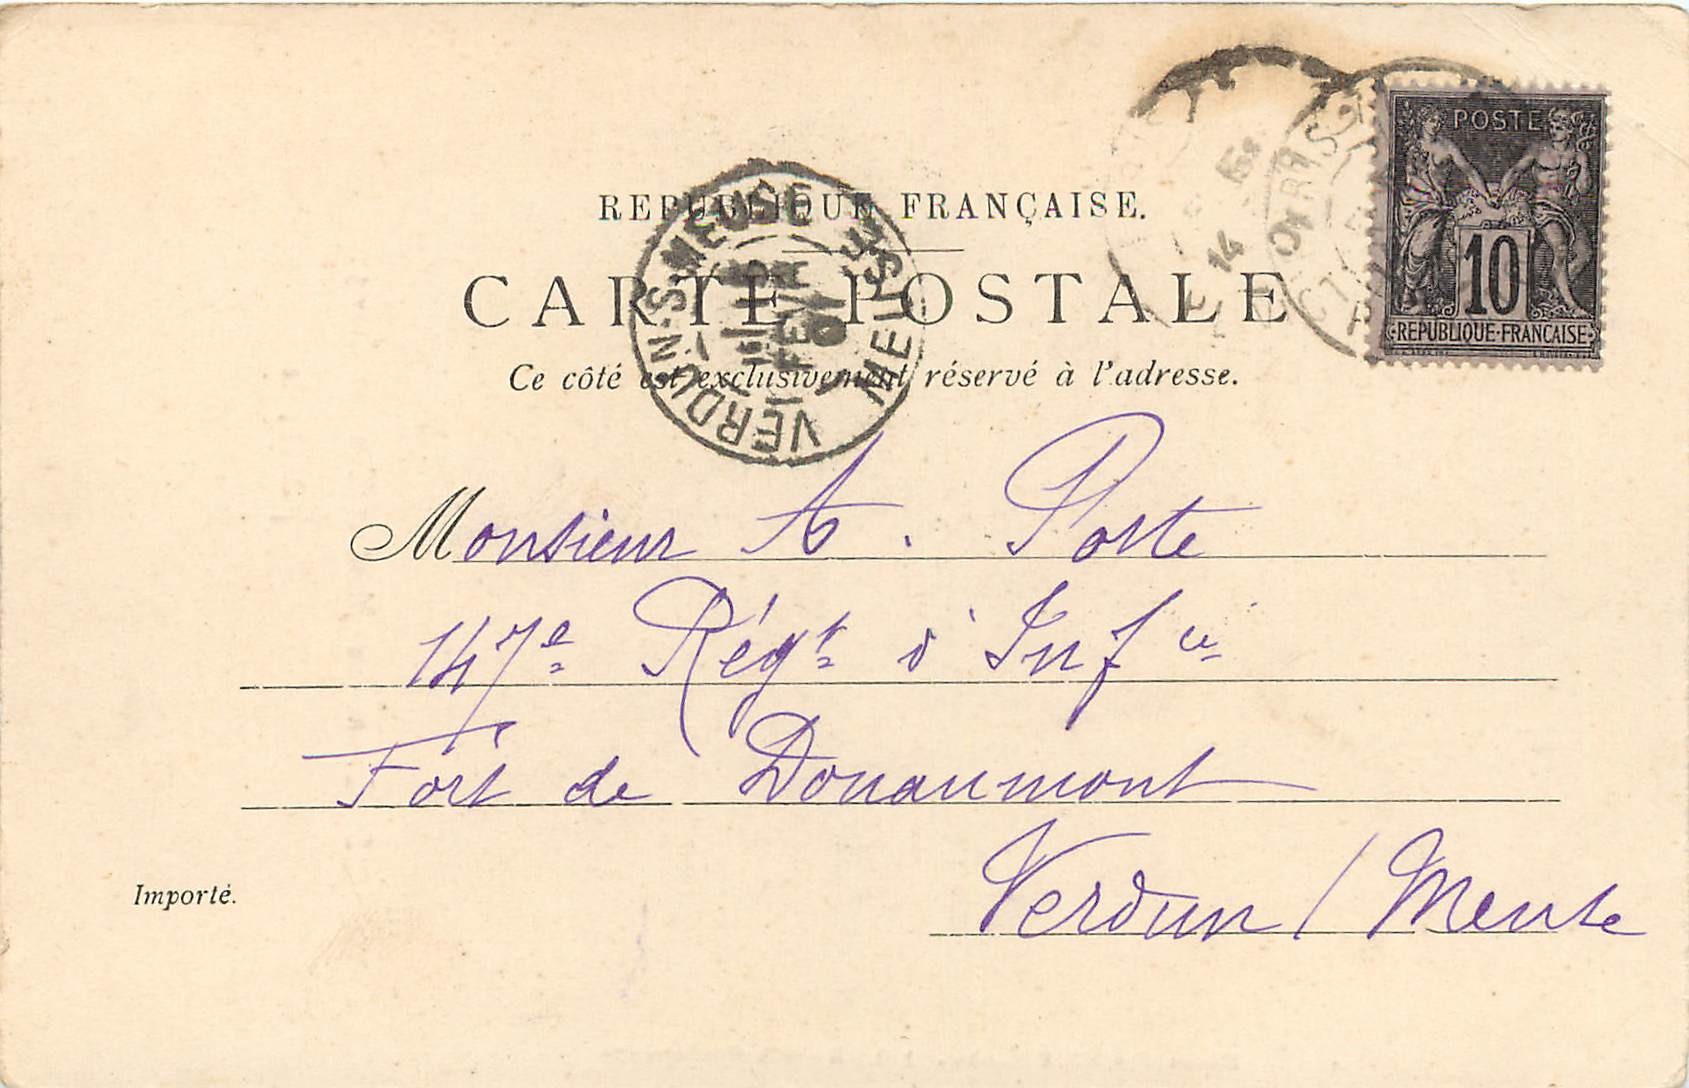 REPUBLIQUE FRANÇAISE.
CARTE POSTALE
Ce côté est exclusivement réservé à l'adresse.
POSTE
10
REPUBLIQUE-FRANÇAISE
VERDUN-S-MEUSE
MEUSE
FEVR
01
14
Monsieur A. Poste
147e Régt d'Infie
Fort de Douaumont
Verdun / Meuse
Importé.